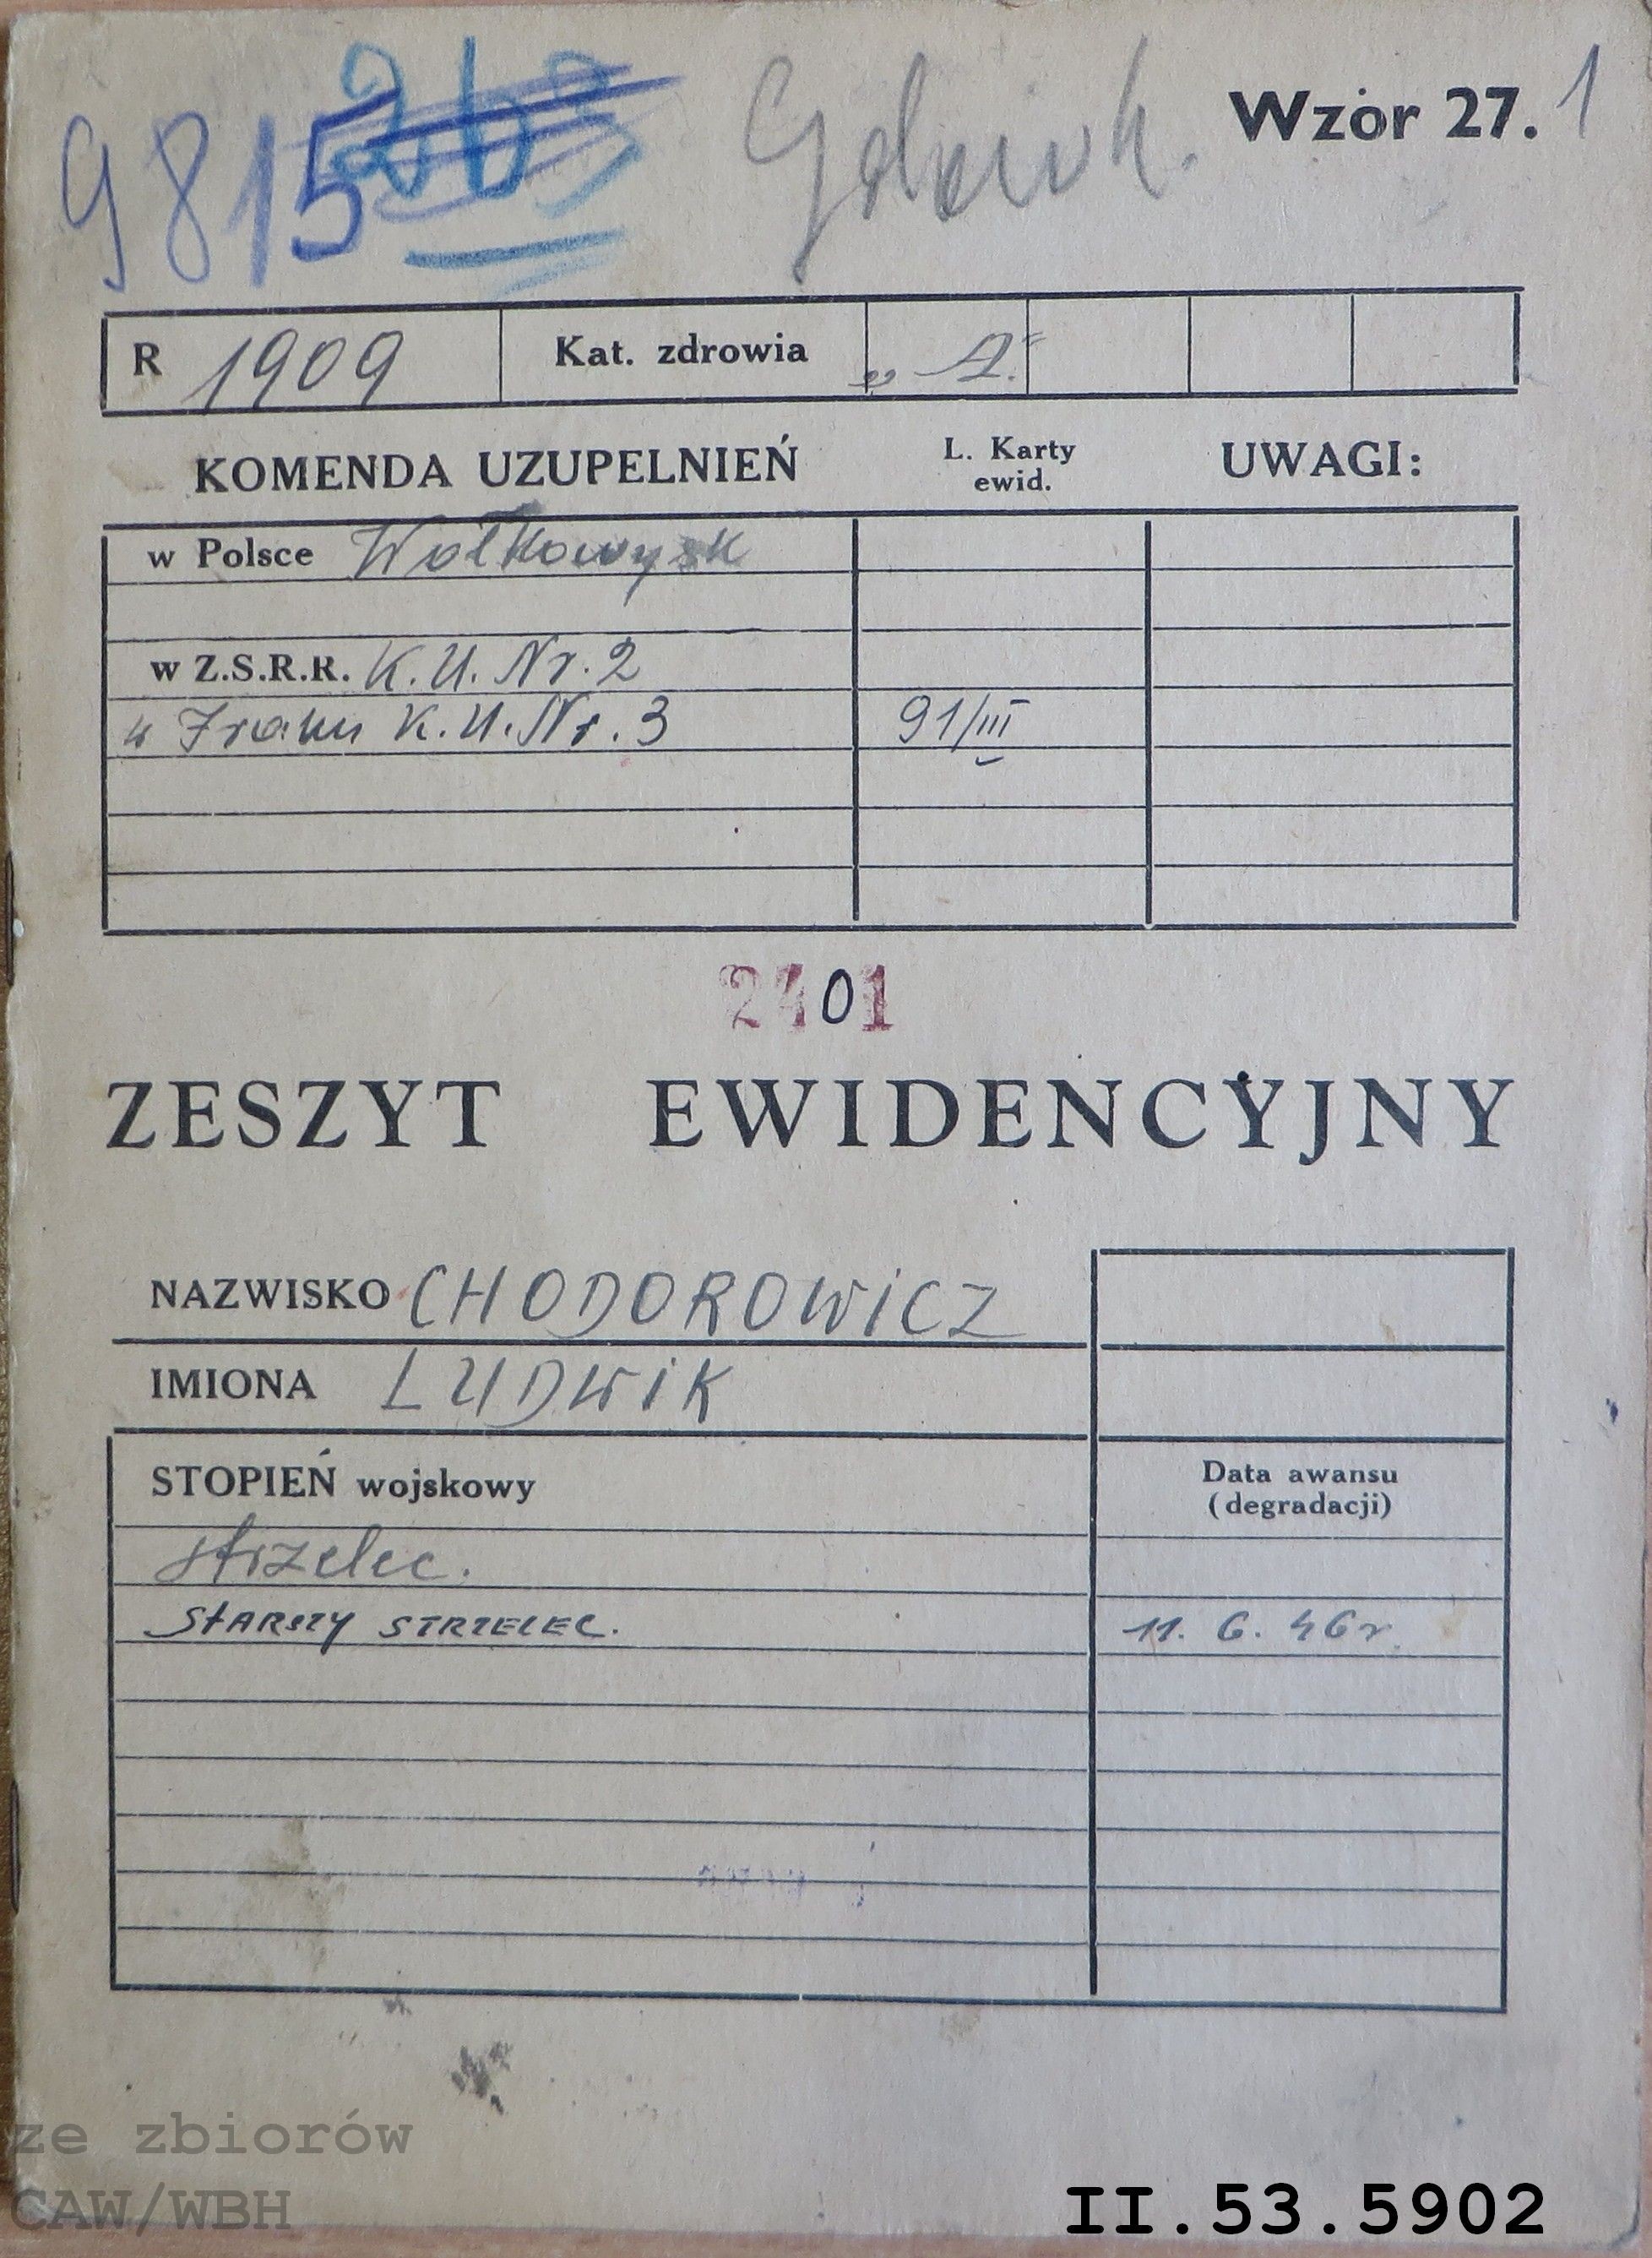 9815
Wzór 27. 1
R 1909 Kat. zdrowia „A.“
KOMENDA UZUPELNIEŃ L. Karty ewid. UWAGI:
w Polsce Wołkowysk
w Z.S.R.R. K.U. Nr. 2
w Iraku K.U. Nr. 3 91/III
2401
ZESZYT EWIDENCYJNY
NAZWISKO CHODOROWICZ
IMIONA LUDWIK
STOPIEŃ wojskowy Data awansu
(degradacji)
strzelec.
STARSZY STRZELEC. 11. 6. 46 r.
ze zbiorów
CAW/WBH
II.53.5902